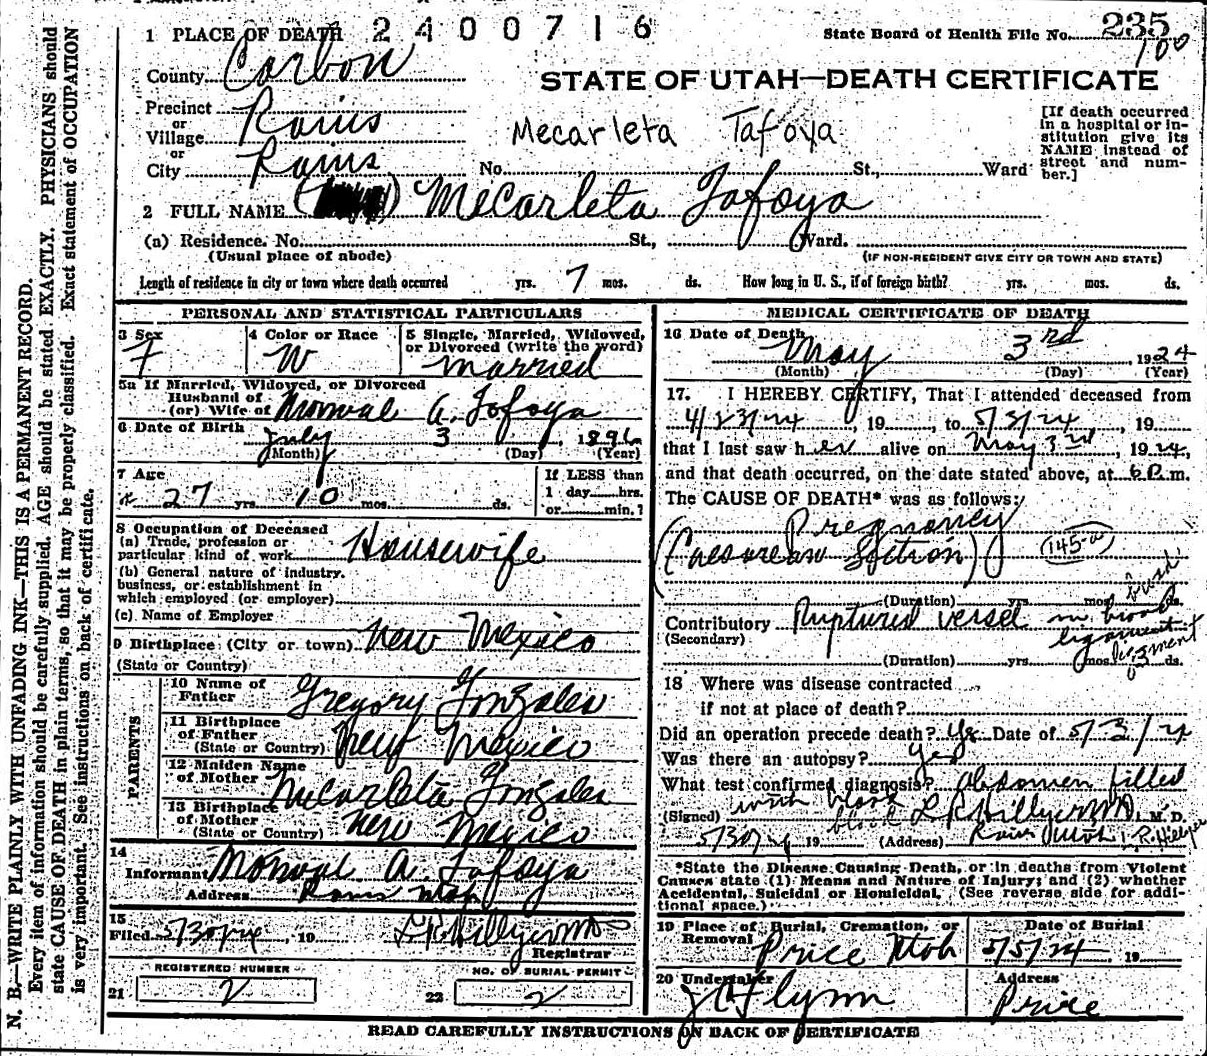 2400716
State Board of Health File No. 235
100
1 PLACE OF DEATH
County Carbon
STATE OF UTAH—DEATH CERTIFICATE
Precinct
or
Village Rains
Mecarleta Tafoya
[If death occurred in a hospital or institution give its NAME instead of street and number.]
or
City Rains No. St., Ward
2 FULL NAME ( ) Mecarleta Tafoya
(a) Residence. No. St., Ward.
(Usual place of abode) (IF NON-RESIDENT GIVE CITY OR TOWN AND STATE)
Length of residence in city or town where death occurred yrs. 7 mos. ds. How long in U. S., if of foreign birth? yrs. mos. ds.
PERSONAL AND STATISTICAL PARTICULARS
3 Sex F
4 Color or Race W
5 Single, Married, Widowed, or Divorced (write the word) married
5a If Married, Widowed, or Divorced
Husband of
(or) Wife of A. Tafoya
6 Date of Birth July 3, 1896
(Month) (Day) (Year)
7 Age 27 yrs. 10 mos. ds.
If LESS than
1 day hrs.
or min.?
8 Occupation of Deceased
(a) Trade, profession or
particular kind of work Housewife
(b) General nature of industry.
business, or establishment in
which employed (or employer)
(c) Name of Employer
9 Birthplace (City or town) New Mexico
(State or Country)
PARENTS
10 Name of
Father Gregory Gonzales
11 Birthplace
of Father
(State or Country) New Mexico
12 Maiden Name
of Mother Mecarleta Gonzales
13 Birthplace
of Mother
(State or Country) New Mexico
14
Informant A Tafoya
Address Rains Utah
15
Filed 5/30/24, 19 L R Hillyer MD
Registrar
REGISTERED NUMBER
21 2
NO. OF BURIAL PERMIT
22 2
MEDICAL CERTIFICATE OF DEATH
16 Date of Death May 3rd 1924
(Month) (Day) (Year)
17. I HEREBY CERTIFY, That I attended deceased from
4/23/24, 19 , to 5/3/24, 19
that I last saw her alive on May 3rd, 1924,
and that death occurred, on the date stated above, at 6 P.m.
The CAUSE OF DEATH* was as follows:
Pregnancy
(Caesarean Section) (145-a)
(Duration) yrs. mos. ds.
broad
Contributory Ruptured vessel in broad
(Secondary) ligament
ligament
(Duration) yrs. mos. 3 ds.
18 Where was disease contracted
if not at place of death?
Did an operation precede death? Yes Date of 5/3/24
Was there an autopsy? Yes
What test confirmed diagnosis? abdomen filled
with blood
(Signed) L R Hillyer MD M. D.
blood
5/30/24 19 (Address) Rains Utah L. R. Hillyer
*State the Disease Causing Death, or in deaths from Violent
Causes state (1) Means and Nature of Injury; and (2) whether
Accidental, Suicidal or Homicidal. (See reverse side for additional space.)
19 Place of Burial, Cremation, or
Removal Price Utah
Date of Burial
5/5/24 19
20 Undertaker
J C Flynn
Address
Price
READ CAREFULLY INSTRUCTIONS ON BACK OF CERTIFICATE
N. B.—WRITE PLAINLY WITH UNFADING INK—THIS IS A PERMANENT RECORD.
Every item of information should be carefully supplied. AGE should be stated EXACTLY. PHYSICIANS should
state CAUSE OF DEATH in plain terms, so that it may be properly classified. Exact statement of OCCUPATION
is very important. See instructions on back of certificate.